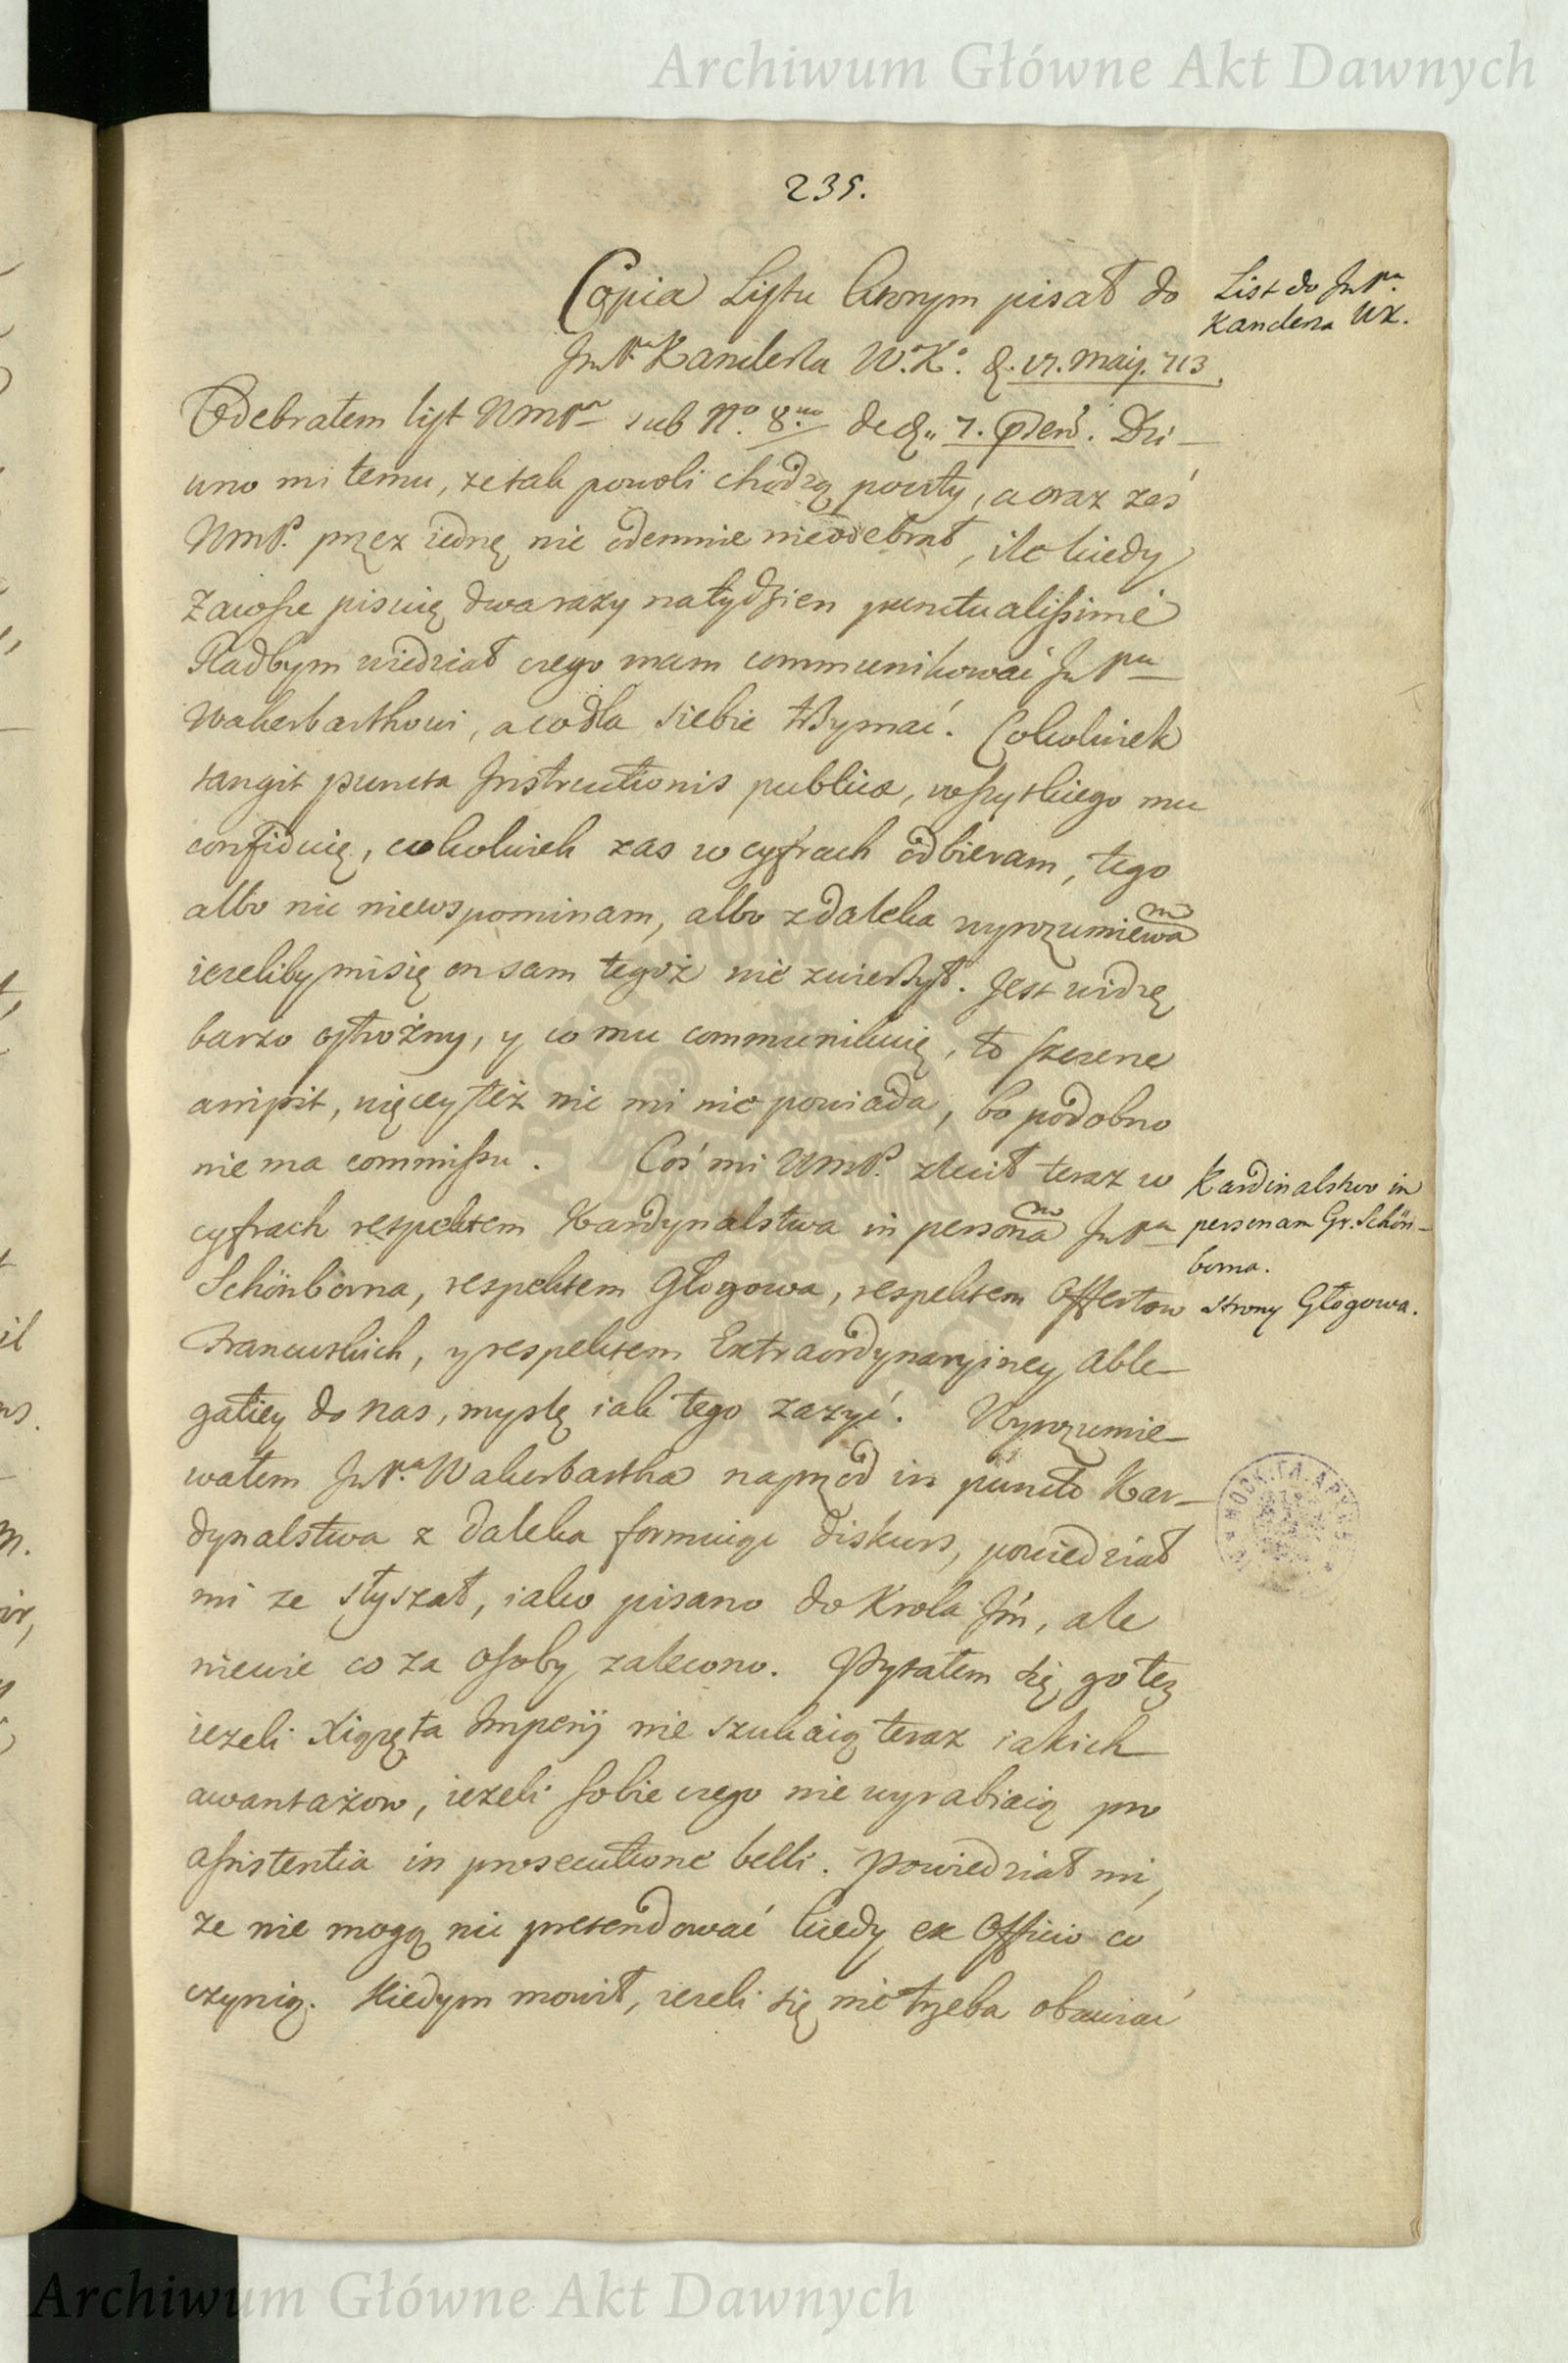 Archiwum Główne Akt Dawnych
235.
Copia Listu ktorym pisał do
JmPa Kanclerza W.K. d. 17. Maij. 713.
List do JmPa.
Kanclerza WK.
Odebrałem list WmPa sub No. 8vo de d. 7. praes. Dzi-
wno mi temu, ze tak powoli chodzą poczty, a oraz żeś
WmP. przez iednę nic odemnie nieodebrał, ile kiedy
Zawsze pisuię dwa razy na tydzien punctualissimè
Radbym wiedział czego mam communikować JmPu
Wakerbarthowi, a co dla siebie trzymać. Cokolwiek
tangit puncta Instructionis publicæ, wszytkiego mu
confiduię, cokolwiek zas w cyfrach odbieram, tego
albo nic niewspominam, albo zdaleka wyrozumiewam
iezeliby mi się on sam tegoż nie zwierzył. Jest widzę
barzo ostrożny, y co mu communikuię, to szczerze
arripit, więcey też nic mi nie powiada, bo podobno
nie ma commissu. Coś mi WmP. zlecił teraz w
cyfrach respektem Kardynalstwa in personam JmPa
Kardinalstwo in
personam Gr. Schön-
borna.
Schönborna, respektem Głogowa, respektem Offertow
strony Głogowa.
Francuskich, y respektem Extraordynaryiney Able-
gatiey do nas, myślę iak tego zazyć. Wyrozumie-
wałem JmPa Wakerbartha naprzod in puncto Kar-
dynalstwa z daleka formuiąc diskurs, powiedział
mi ze słyszał, iako pisano do Krola Jm, ale
niewie co za osoby zalecono. Pytałem się go też
iezeli Xiążęta Imperij nie szukaią teraz iakich
awantażow, iezeli sobie czego nie wyrabiaią pro
assistentia in prosecutione belli. Powiedział mi,
ze nie mogą nic pretendować kiedy ex Officio co
czynią. Kiedym mowił, iezeli się nie trzeba obawiać
Archiwum Główne Akt Dawnych